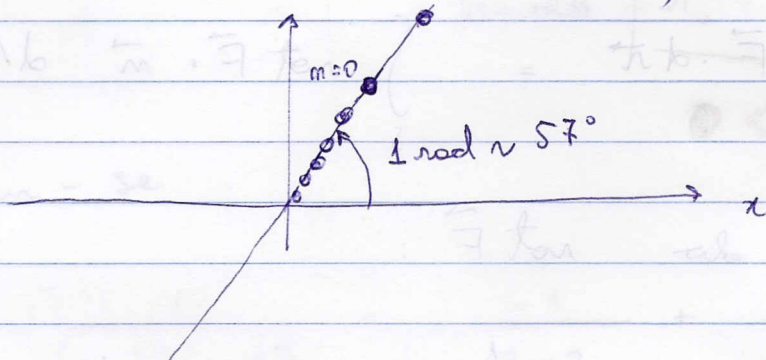 m=0
1 rad ~ 57°
x